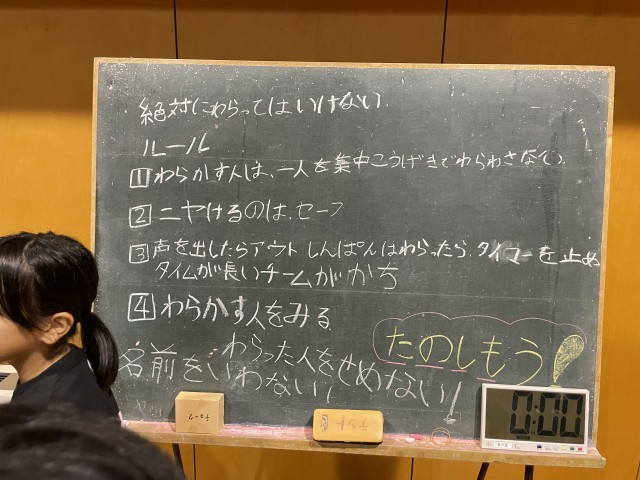 絶対にわらってはいけない
ルール
1 わらかす人は、一人を集中こうげきでわらわさない。
2 ニヤけるのは、セーフ
3 声を出したらアウト しんぱんはわらったら、タイマーを止め
タイムが長いチームがかち
4 わらかす人をみる
たのしもう!
名前をいわない! わらった人をせめない!
0:00